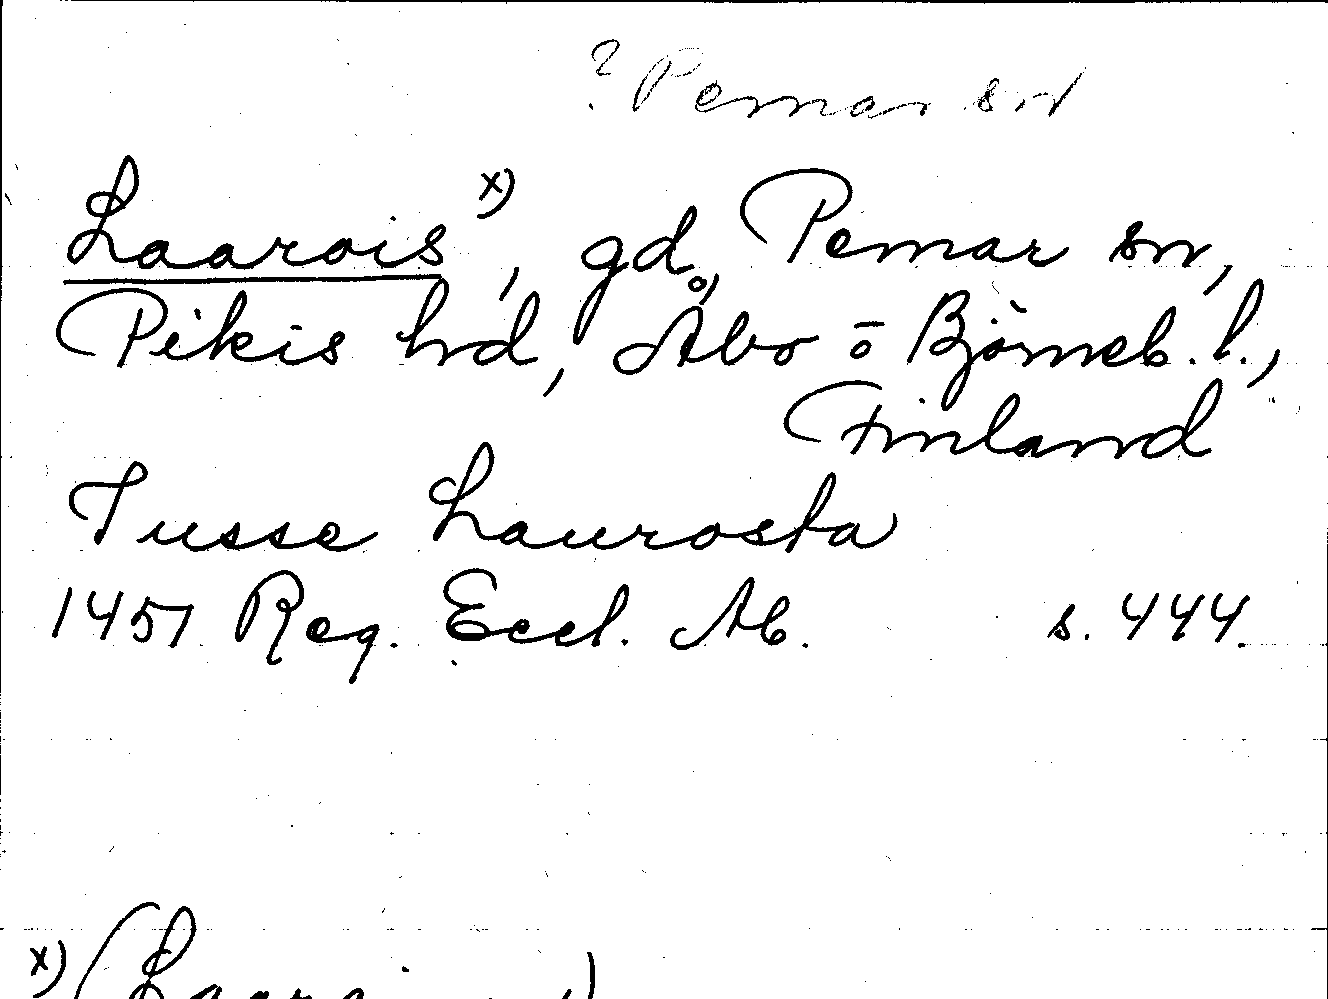 ? Pemar sn
Laarois x), gd, Pemar sn,
Pikis hd, Åbo o Björneb. l.,
Finland
Jusse Laurosta
1451 Reg. Eccl. Ab. s. 444.
x)